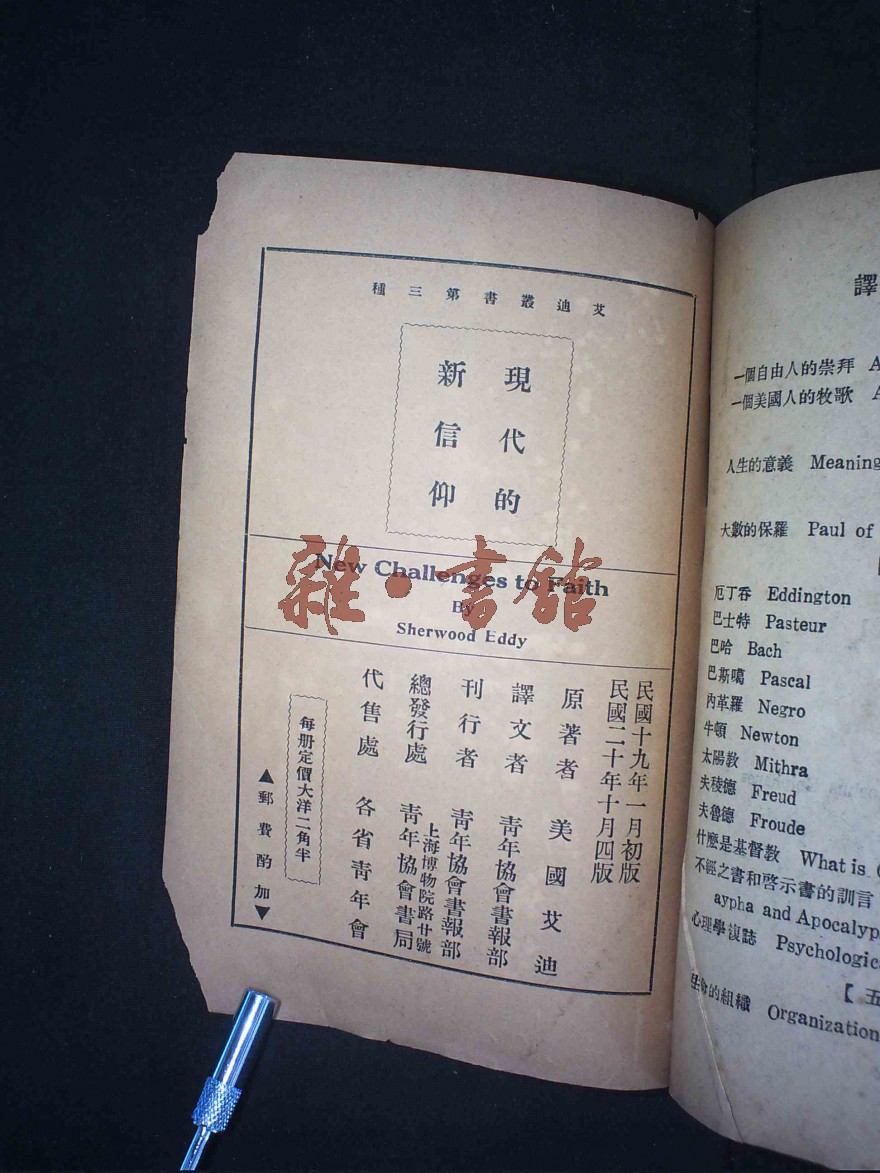 艾迪叢書第三種
現代的
新信仰
New Challenges to Faith
By
Sherwood Eddy
民國十九年一月初版
民國二十年十月四版
原著者 美國艾迪
譯文者 青年協會書報部
刊行者 青年協會書報部
總發行處 上海博物院路廿號
青年協會書局
代售處 各省青年會
每册定價大洋二角半
▲郵費酌加▼
雜·書館
譯
一個自由人的崇拜 A
一個美國人的牧歌 A
人生的意義 Meaning
大數的保羅 Paul of
厄丁吞 Eddington
巴士特 Pasteur
巴哈 Bach
巴斯噶 Pascal
內革羅 Negro
牛頓 Newton
太陽教 Mithra
夫稜德 Freud
夫魯德 Froude
什麼是基督教 What is
不經之書和啓示書的訓言
aypha and Apocalyp
心理學復誌 Psychologica
【五
生命的組織 Organization